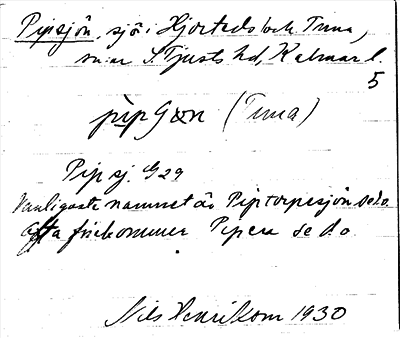 Pipsjön, sjö i Hjorteds och Tuna,
snr S. Tjusts hd, Kalmar l.
5
pìpʃɷn (Tuna)
Pip sj. G29
Vanligaste namnet är Piptorpesjön se d.o.
Ofta förekommer Pipera se d.o.
Nils Henrikson 1930